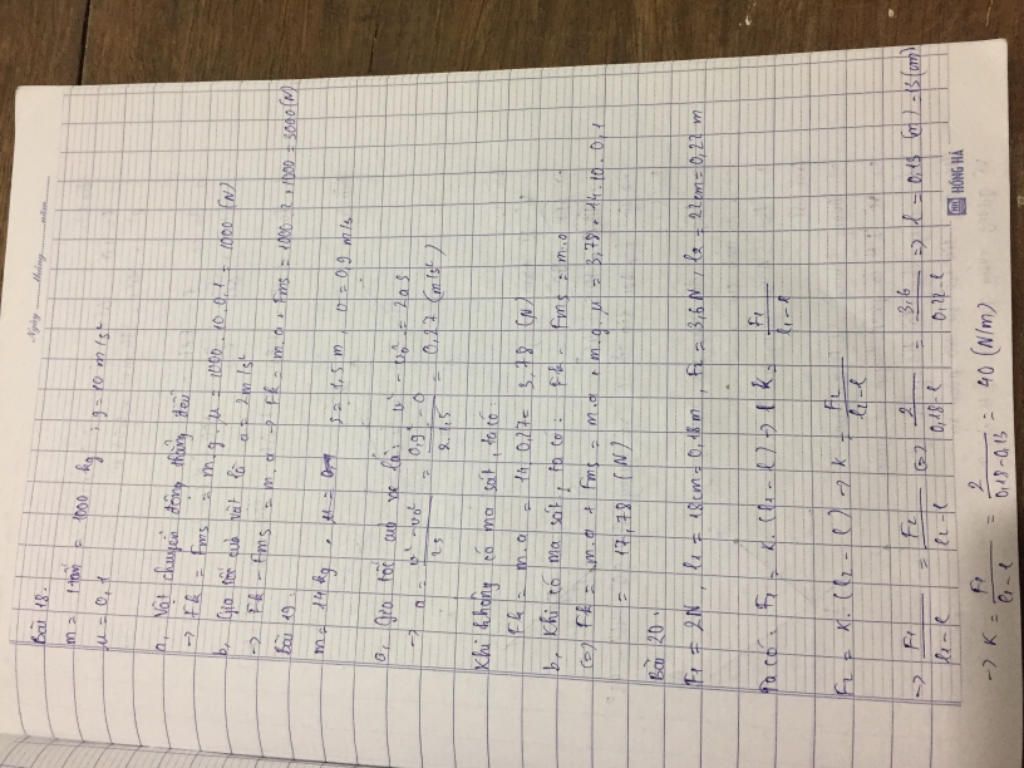 Ngày ...... tháng ...... năm ......
Bài 18.
m = 1 tấn = 1000 kg ; g = 10 m/s²
μ = 0,1
a, Vật chuyển động thẳng đều
→ Fk = Fms = m.g.μ = 1000.10.0,1 = 1000 (N)
b, Gia tốc của vật là a = 2 m/s²
→ Fk - Fms = m.a → Fk = m.a + Fms = 1000.2 + 1000 = 3000 (N)
Bài 19.
m = 14 kg, μ = 0,1 s = 1,5 m, v = 0,9 m/s
a, Gia tốc của xe là: v² - v₀² = 2as
→ a = (v² - v₀²)/(2s) = (0,9² - 0)/(2.1,5) = 0,27 (m/s²)
Khi không có ma sát, ta có:
Fk = m.a = 14.0,27 = 3,78 (N)
b, Khi có ma sát, ta có: Fk - Fms = m.a
(=) Fk = m.a + Fms = m.a + m.g.μ = 3,78 + 14.10.0,1
= 17,78 (N)
Bài 20.
F1 = 2N, l1 = 18cm = 0,18m, F2 = 3,6N, l2 = 22cm = 0,22m
Ta có: F1 = k.(l1 - l) → k = F1/(l1 - l)
F2 = k.(l2 - l) → k = F2/(l2 - l)
→ F1/(l1 - l) = F2/(l2 - l) (=) 2/(0,18 - l) = 3,6/(0,22 - l) => l = 0,13 (m) = 13 (cm)
→ K = F1/(l1 - l) = 2/(0,18 - 0,13) = 40 (N/m)
HỒNG HÀ